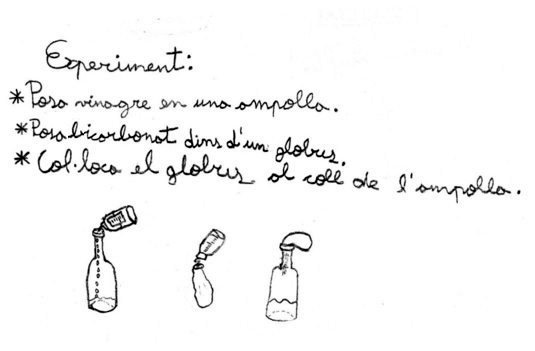 Experiment:
* Posa vinagre en una ampolla.
* Posa bicarbonat dins d'un globus.
* Col·loca el globus al coll de l'ampolla.